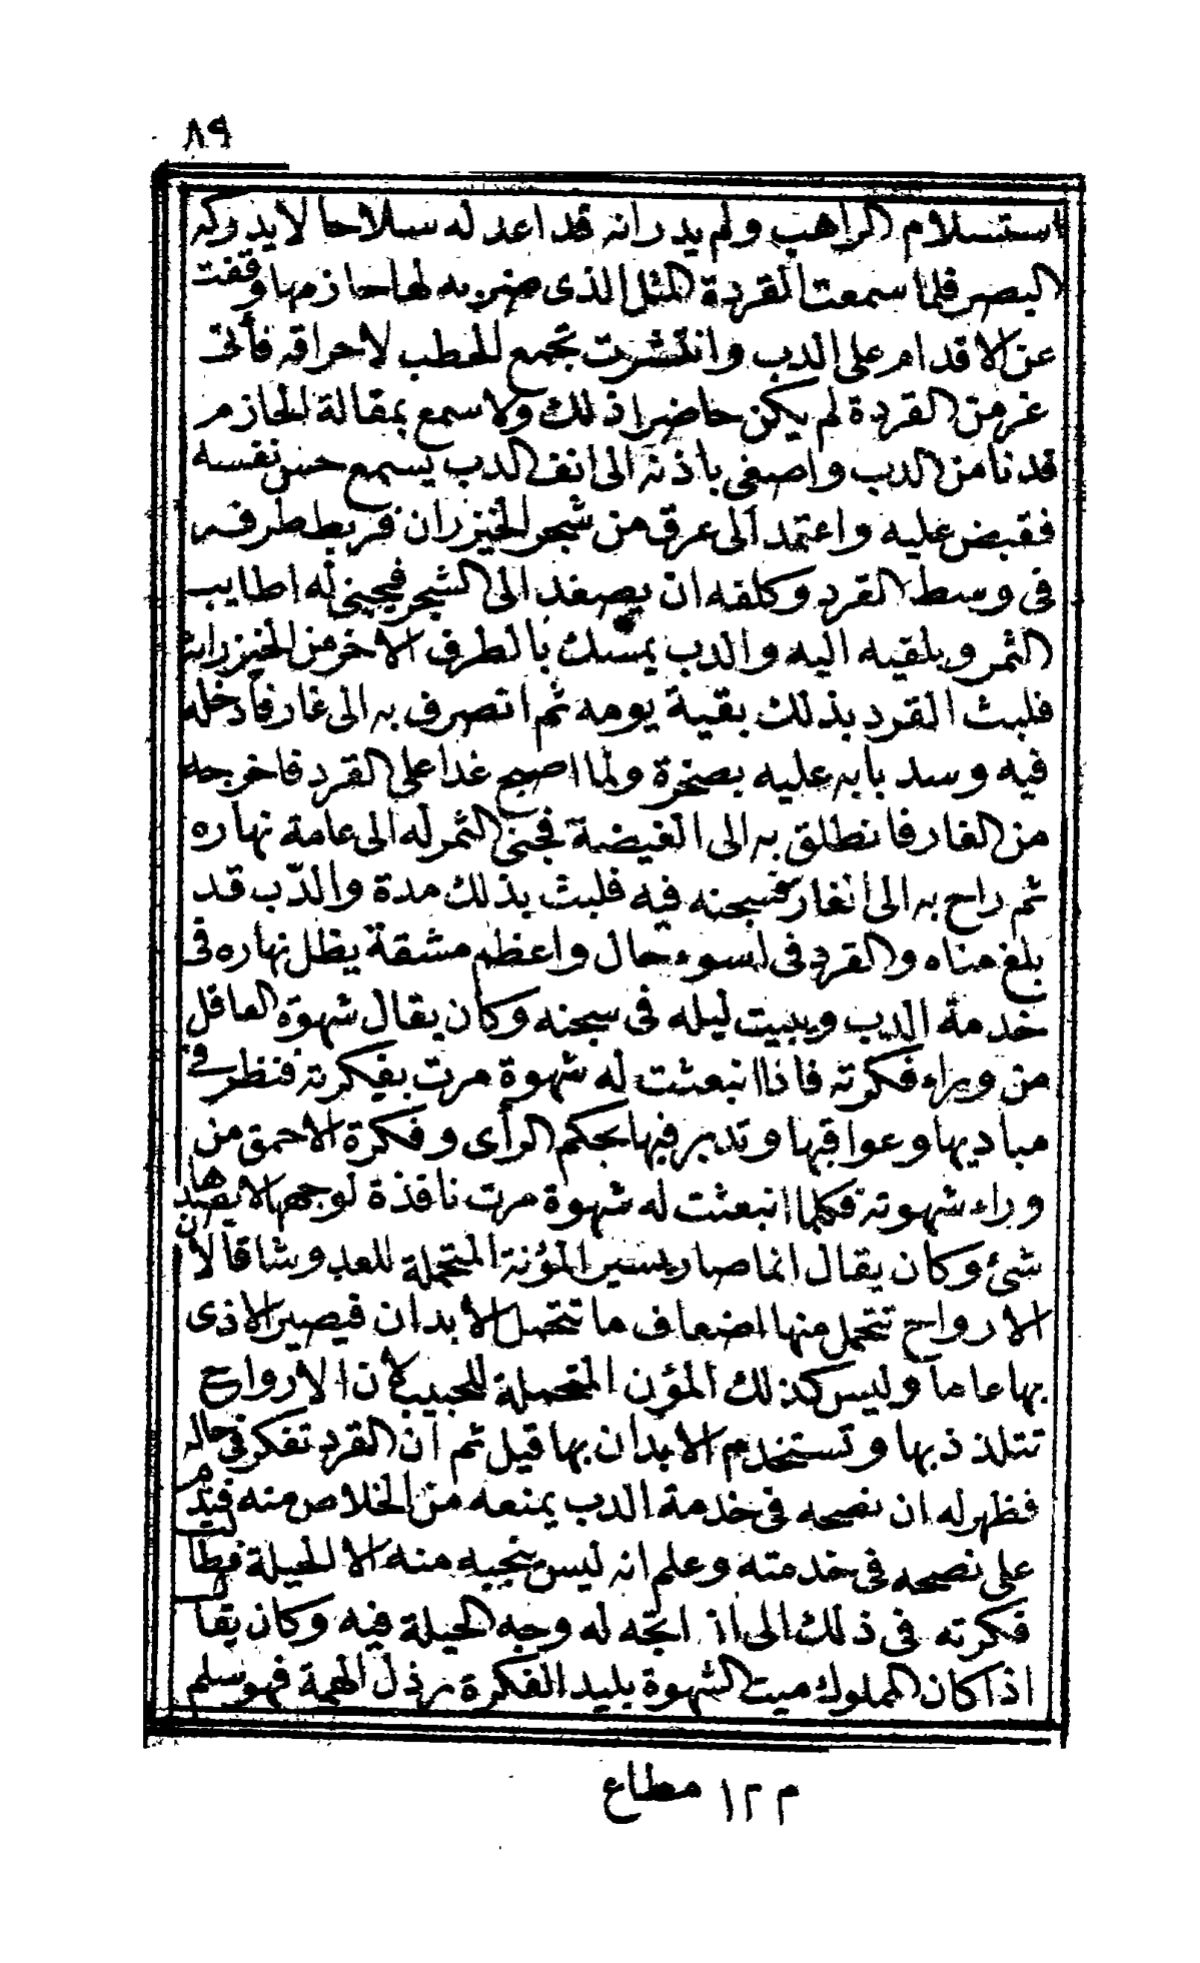 ٨٩
استسلام الراهب ولم يدرانه قد اعد له سلاحا لا يدركه
البصر فلما سمعت القردة المثل الذى ضربه لها حازمها وقفت
عن الاقدام على الدب وانتشرت تجمع الحطب لاحراقه فأتى
غر من القردة لم يكن حاضرا ذلك ولا سمع بمقالة الحازم
قد نا من الدب واصغى باذنه الى انف الدب يسمع حس نفسه
فقبض عليه واعتمد الى عرق من شجر الخيزران فربط طرفه
فى وسط القرد وكلفه ان يصعد الى الشجر فيجنى له اطايب
الثمر ويلقيه اليه والدب يمسك بالطرف الاخر من الخيزران
فلبث القرد بذلك بقية يومه ثم انصرف به الى غار فأدخله
فيه وسد بابه عليه بصخرة ولما اصبح غدا على القرد فاخرجه
من الغار فانطلق به الى الغيضة فجنى الثمر له الى عامة نهاره
ثم راح به الى الغار فسجنه فيه فلبث بذلك مدة والدّب قد
بلغ مناه والقرد فى اسوء حال واعظم مشقة يظل نهاره فى
خدمة الدب ويبيت ليله فى سجنه وكان يقال شهوة العاقل
من وراء فكرته فاذا انبعثت له شهوة مرت بفكرته فنظر فى
مباديها وعواقبها وتدبر فيها بحكم الرأى وفكرة الاحمق من
وراء شهوته فكلما انبعثت له شهوة مرت نافذة لوجهها لا يصدها
شئ وكان يقال انما صار يسير المؤنة المتحملة للعدو شاقا لان
الارواح تتحمل منها اضعاف ما تتحمل الأبدان فيصير الاذى
بها عاما وليس كذلك المؤن المتحملة للحبيب لأن الارواح
تتلذذ بها وتستخدم الابدان بها قيل ثم ان القرد تفكر فى حاله
فظهر له ان نصحه فى خدمة الدب يمنعه من الخلاص منه فندم
على نصحه فى خدمته وعلم انه ليس ينجيه منه الا الحيلة فطالت
فكرته فى ذلك الى ان اتجه له وجه الحيلة فيه وكان يقال
اذا كان المملوك ميت الشهوة بليد الفكرة رذل الهمة فهو سلم
م ١٢ مطاع